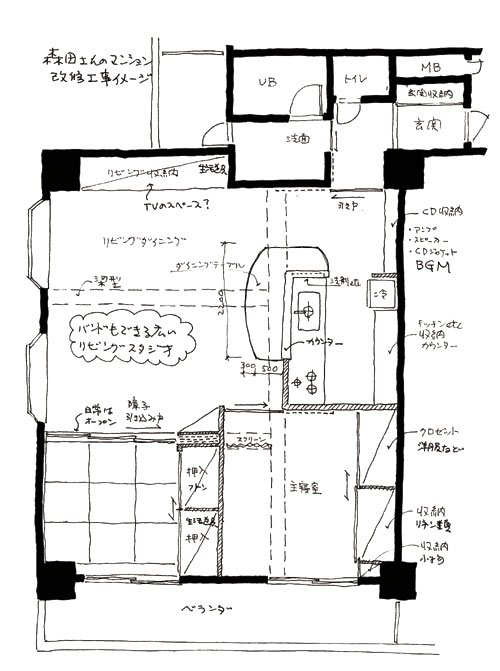 森田さんのマンション
改修工事イメージ
UB
トイレ
MB
玄関収納
玄関
洗面
リビング収納
生活道具
TVのスペース?
引き戸
CD収納
・アンプ
・スピーカー
・CDジャケット
BGM
リビングダイニング
ダイニングテーブル
梁型
2200
冷
カウンター
キッチンetc
収納
カウンター
バンドもできる広い
リビングスタジオ
300
500
日常は
オープン
障子
引込み戸
スクリーン
押入
フトン
生活道具
押入
主寝室
クロゼット
洋服など
収納
リネン類
収納
小もの
ベランダー